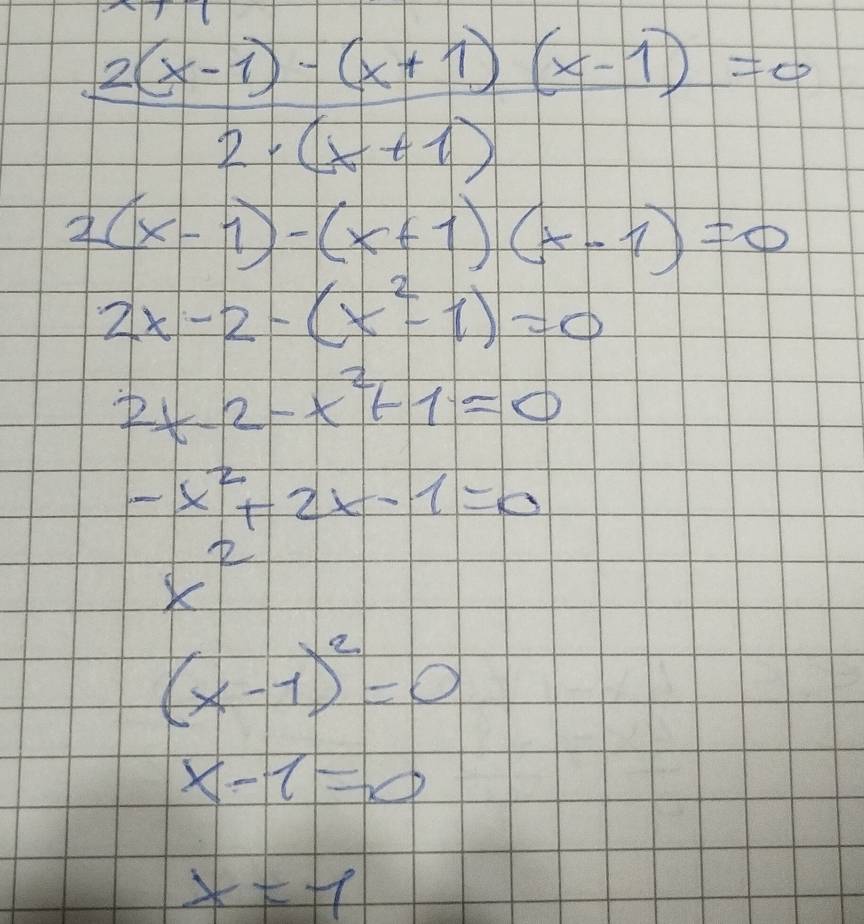 x+1
2(x-1)-(x+1)(x-1)=0
2·(x+1)
2(x-1)-(x+1)(x-1)=0
2x-2-(x²-1)=0
2x-2-x²+1=0
-x²+2x-1=0
x²
(x-1)²=0
x-1=0
x=1